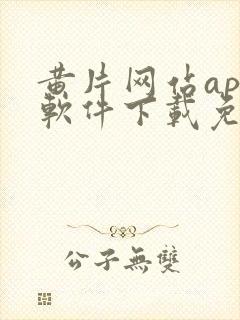 黄片网站ap
软件下载免
公子無雙